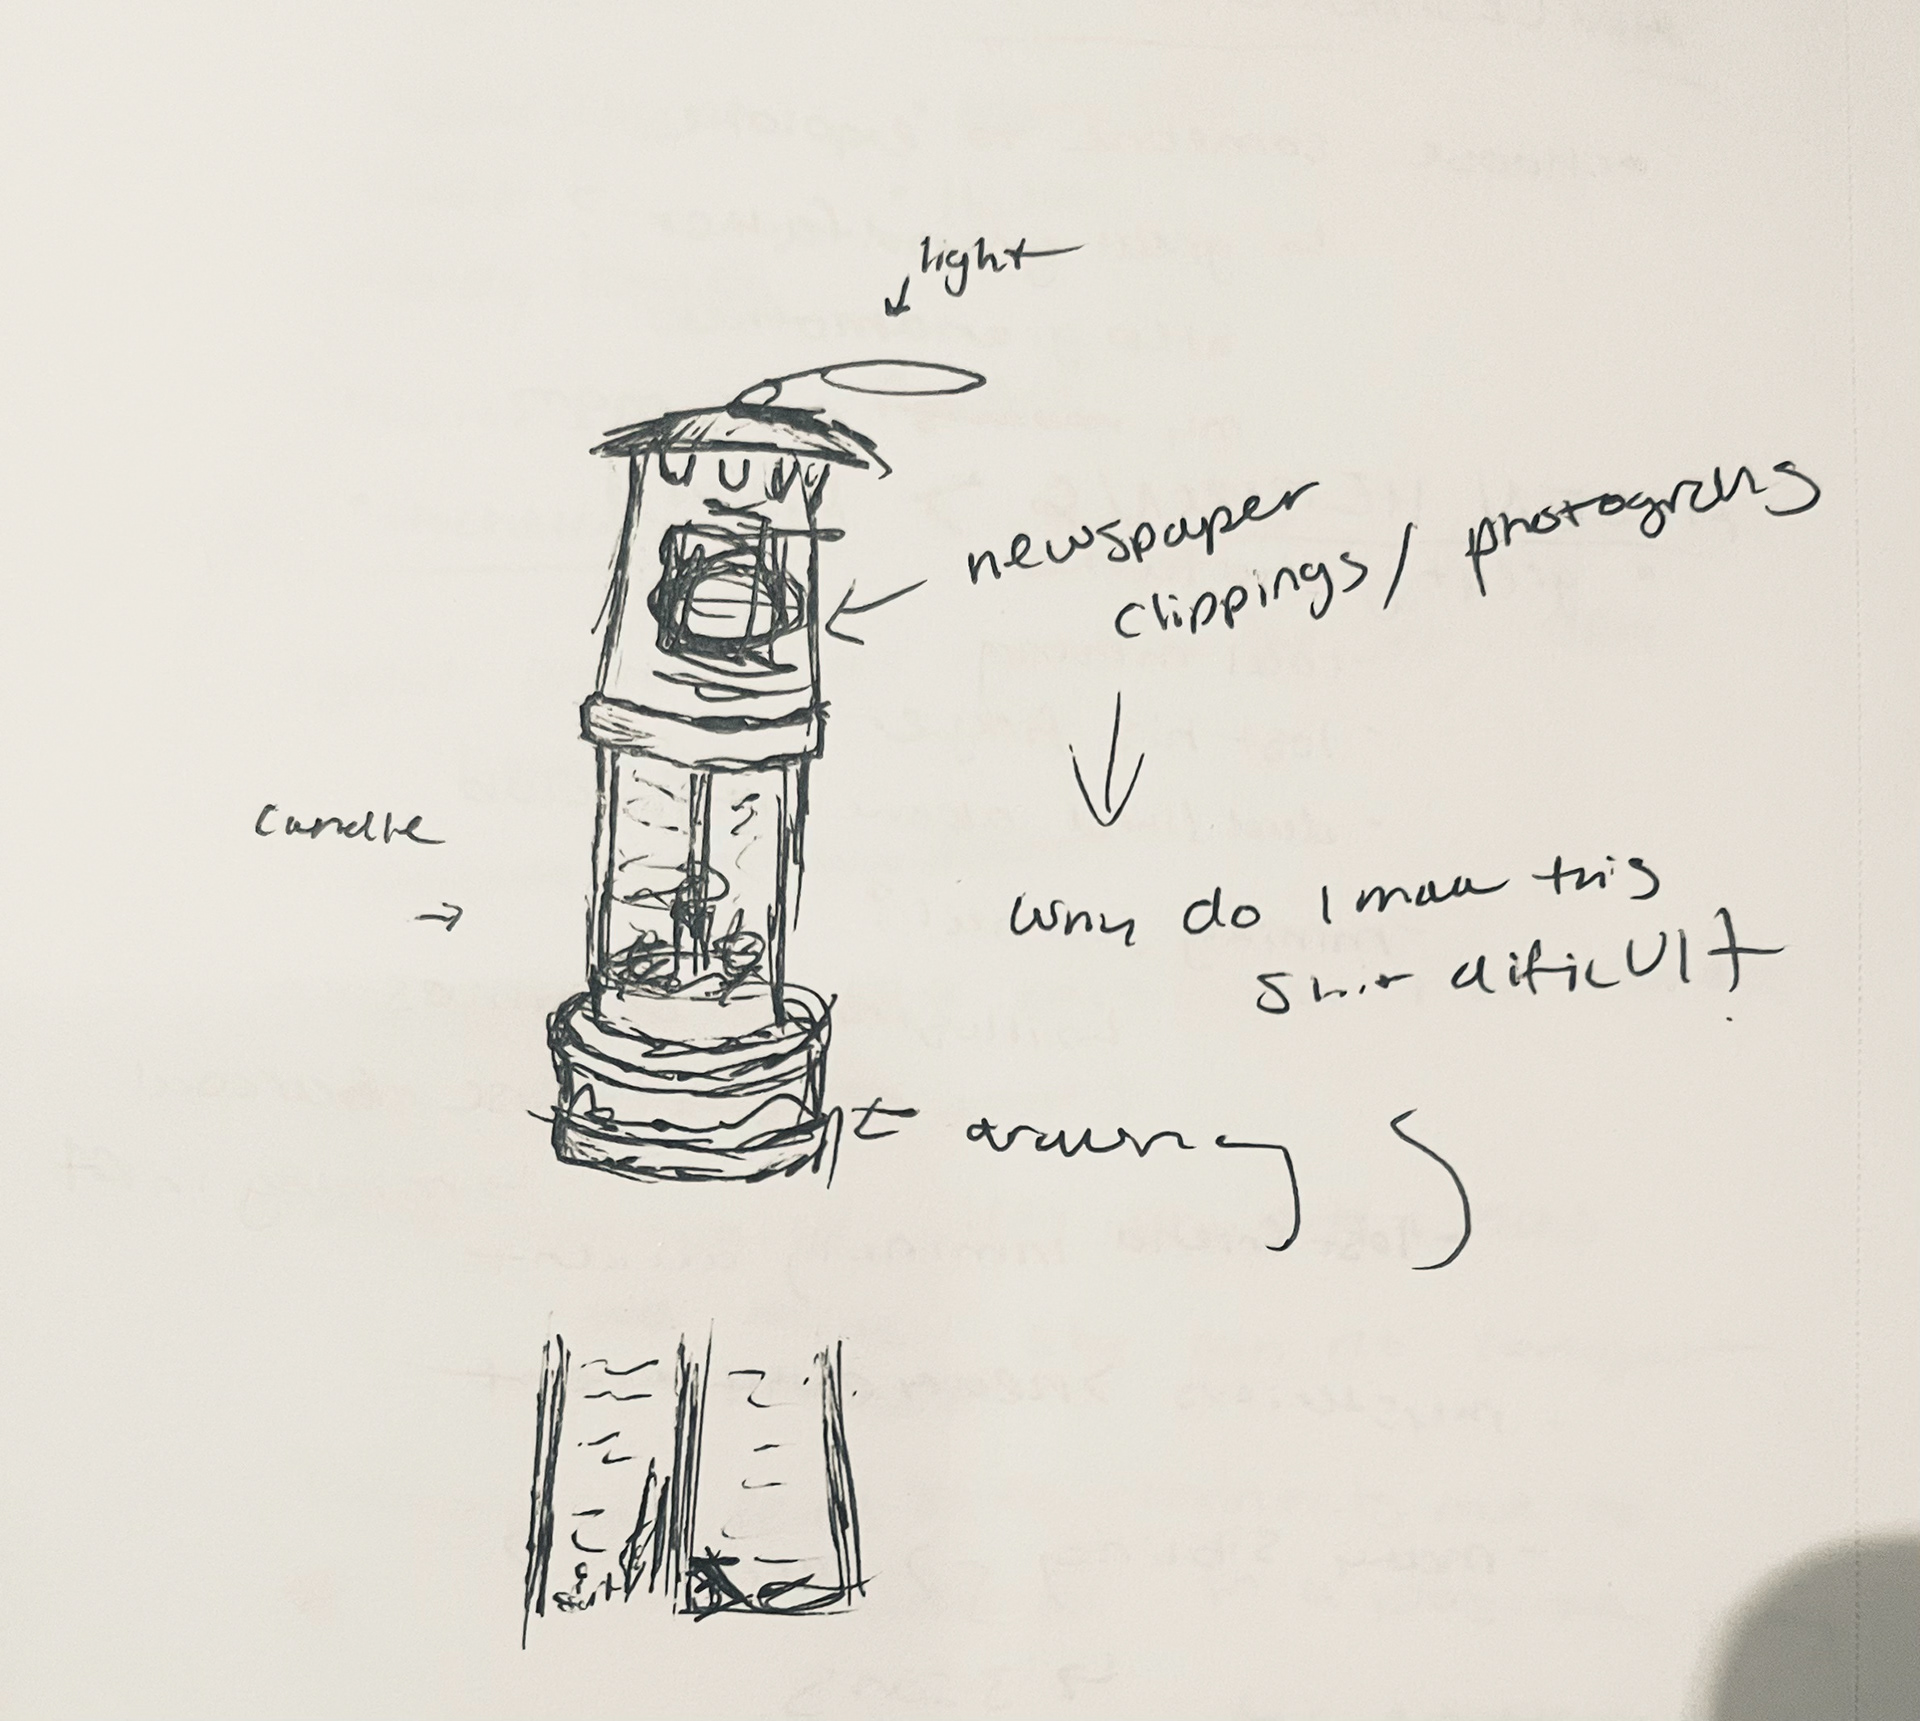 light
newspaper
clippings / photographs
candle
why do I make this
shit dificult
drawing